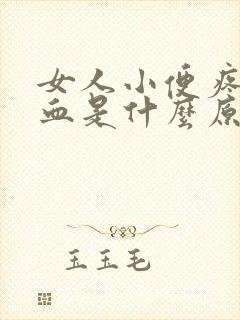 女人小便疼
血是什麼原
玉玉毛